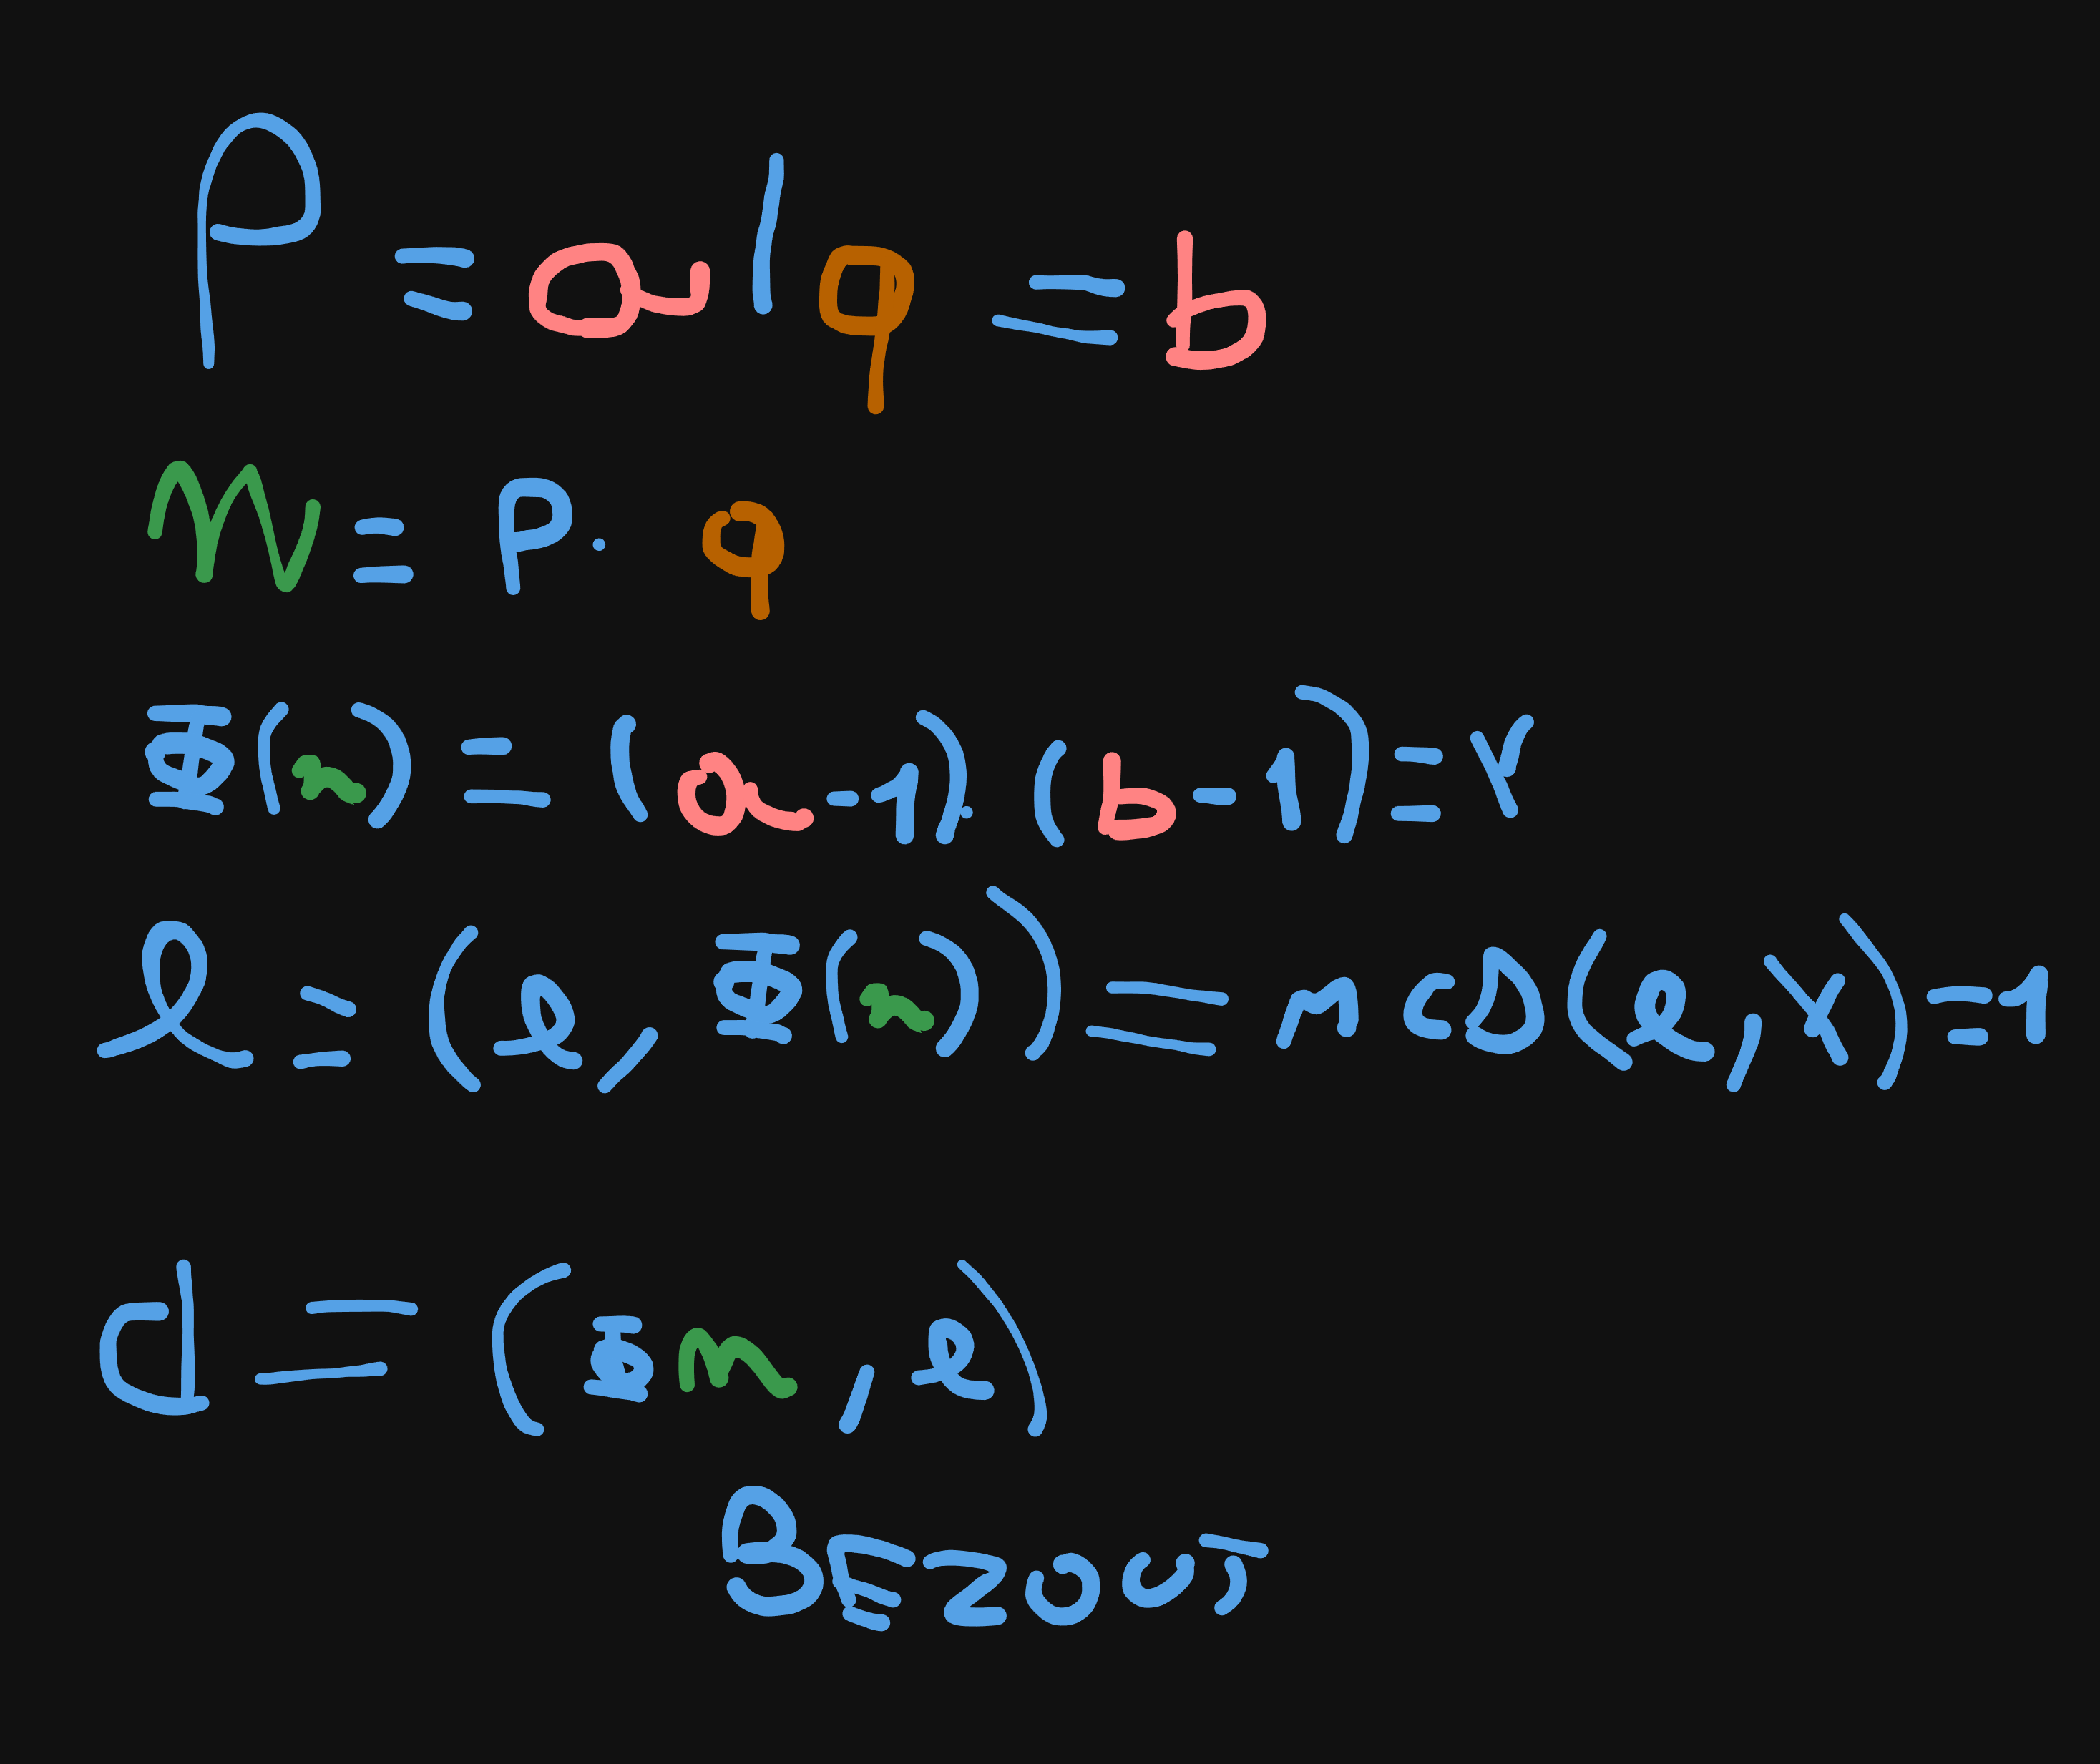 P = a | q = b
n = P · q
Φ(n) = (a-1) · (b-1) = x
e = (e, Φ(n)) = MCD(e, x) = 1
d = (Φn, e)
BEZOUT